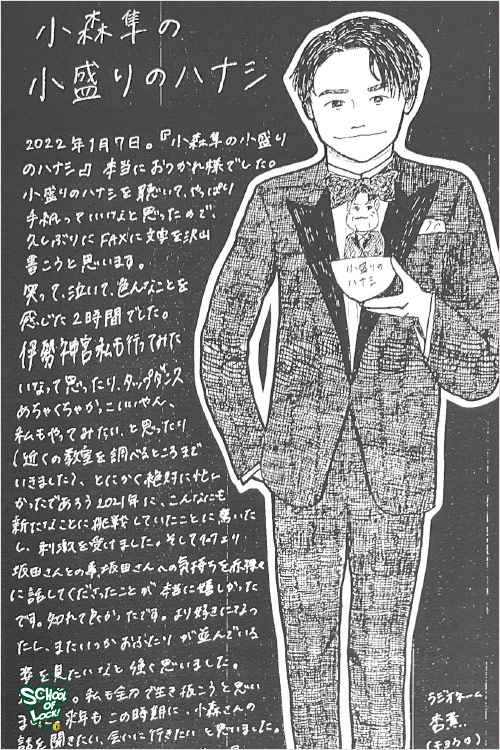 小森隼の
小盛りのハナシ
2022年1月7日。『小森隼の小盛り
のハナシ』本当におつかれ様でした。
小盛りのハナシを聴いて、やっぱり
手紙っていいなと思ったので、
久しぶりにFAXに文字を沢山
書こうと思います。
笑って、泣いて、色んなことを
感じた2時間でした。
伊勢神宮私も行ってみた
いなって思ったり、タップダンス
めちゃくちゃかっこいいやん、
私もやってみたい、と思ったり
(近くの教室を調べるところまで
いきました)、とにかく絶対に忙し
かったであろう2021年に、こんなにも
新たなことに挑戦していたことに驚いた
し、刺激を受けました。そして何より
坂田さんとの事、坂田さんへの気持ちを赤裸々
に話してくださったことが本当に嬉しかった
です。知れて良かったです。より好きになっ
たし、またいつかおふたりが並んでいる
姿を見たいなと強く思いました。
私も全力で生き抜こうと思い
ま 来年もこの時期に、小森さんの
話を聞きたい、会いに行きたいと思いました。
小盛りの
ハナシ
SCHOOL
OF
LOCK!
ラジオネーム
杏